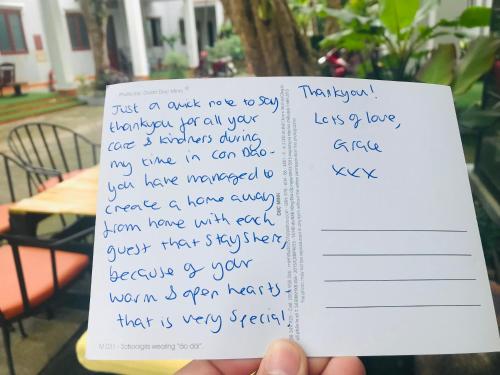 Just a quick note to say
thankyou for all your
care & kindness during
my time in Con Dao -
you have managed to
create a home away
from home with each
guest that stays here,
because of your
warm & open hearts -
that is very special
Thankyou!
Lots of love,
Grace
xxx
M 031 - Schoolgirls wearing "áo dài".